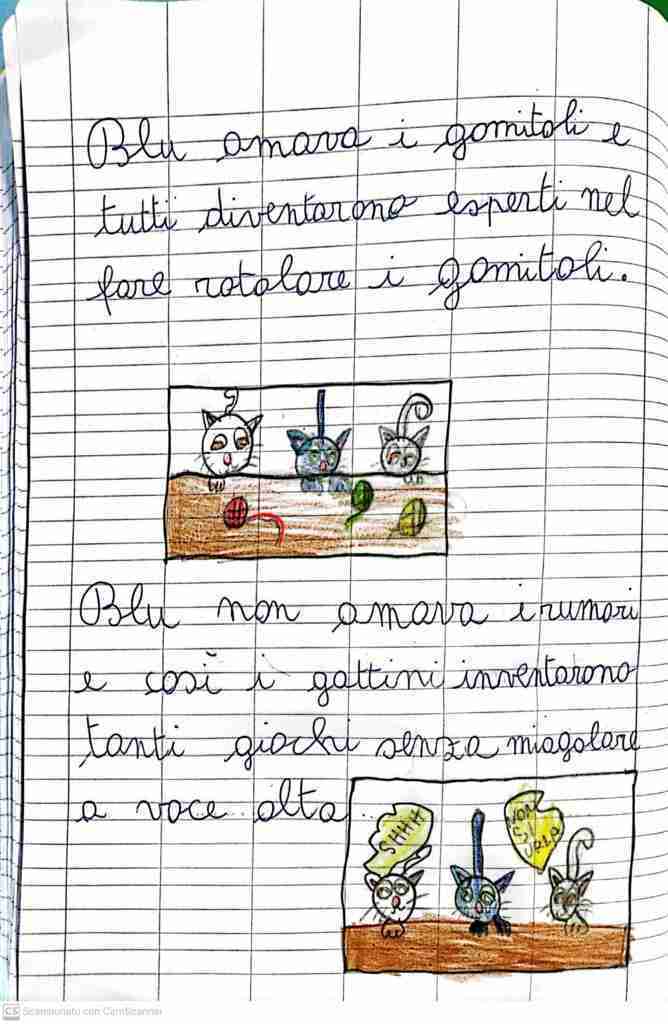 Blu amava i gomitoli e
tutti diventarono esperti nel
fare rotolare i gomitoli.
Blu non amava i rumori
e così i gattini inventarono
tanti giochi senza miagolare
a voce alta
SHHH
NON
SI
URLA
CS Scansionato con CamScanner